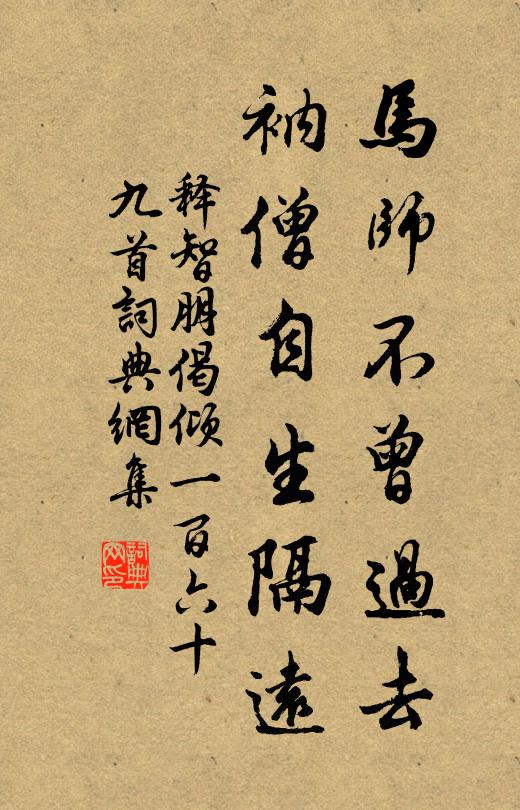 馬師不曾過去
衲僧自生隔遠
释智朋偈倾一百六十
九首詞典網集
詞典网印